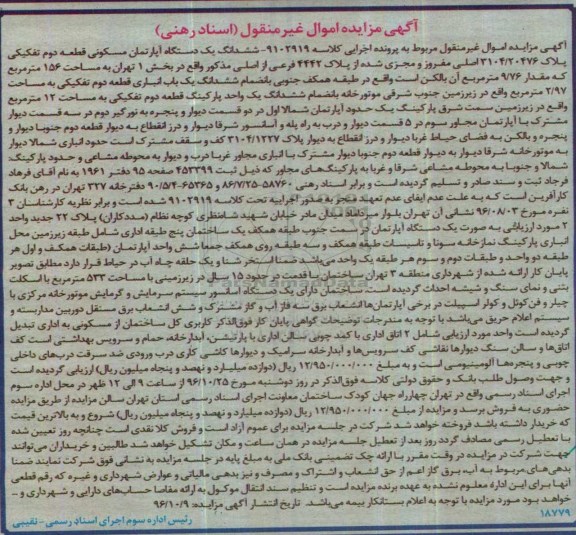 آگهی مزایده اموال غیرمنقول (اسناد رهنی)
آگهی مزایده اموال غیرمنقول مربوط به پرونده اجرایی کلاسه ۹۱۰۲۹۱۹- ششدانگ یک دستگاه آپارتمان مسکونی قطعه دوم تفکیکی
پلاک ۳۱۰۴/۲۰۴۷۶ اصلی مفروز و مجزی شده از پلاک ۴۴۴۲ فرعی از اصلی مذکور واقع در بخش ۱ تهران به مساحت ۱۵۶ مترمربع
که مقدار ۹/۷۶ مترمربع آن بالکن است واقع در طبقه همکف جنوبی بانضمام ششدانگ یک باب انباری قطعه دوم تفکیکی به مساحت
۲/۹۷ مترمربع واقع در زیرزمین جنوب شرقی موتورخانه بانضمام ششدانگ یک واحد پارکینگ قطعه دوم تفکیکی به مساحت ۱۲ مترمربع
واقع در زیرزمین سمت شرق پارکینگ یک حدود آپارتمان شمالا اول در دو قسمت دیوار و پنجره به نورگیر دوم در سه قسمت دیوار
مشترک با آپارتمان مجاور سوم در ۵ قسمت دیوار و درب به راه پله و آسانسور شرقا دیوار و درز انقطاع به دیوار قطعه دوم جنوبا دیوار و
پنجره و بالکن به فضای حیاط غربا دیوار و درز انقطاع به دیوار پلاک ۳۱۰۴/۱۲۳۷ کف و سقف مشترک است حدود انباری شمالا دیوار
به موتورخانه شرقا دیوار به دیوار قطعه دوم جنوبا دیوار مشترک با انباری مجاور غربا درب و دیوار به محوطه مشاعی و حدود پارکینگ
شمالا و جنوبا به محوطه مشاعی شرقا و غربا به پارکینگ‌های مجاور که ذیل ثبت ۴۵۳۳۹۹ صفحه ۹۵ دفتر ۱۹۶۱ به نام آقای فرهاد
فرجاد ثبت و سند صادر و تسلیم گردیده است و برابر اسناد رهنی ۵۸۷۶۰-۸۶/۷/۲۵ و ۶۵۳۶۵-۹۰/۵/۴ دفترخانه ۳۲۷ تهران در رهن بانک
کارآفرین است که به علت عدم ایفای تعهد منجر به صدور اجراییه تحت کلاسه ۹۱۰۲۹۱۹ شده است و برابر نظریه کارشناسان ۳
نفره مورخ ۹۶/۰۸/۰۳ نشانی آن تهران بلوار میرداماد میدان مادر خیابان شهید شاه‌نظری کوچه نظام (مددکاران) پلاک ۲۲ جدید واحد
۲ مورد ارزیابی به صورت یک دستگاه آپارتمان در سمت جنوب طبقه همکف یک ساختمان پنج طبقه اداری شامل طبقه زیرزمین محل
انباری پارکینگ نمازخانه سونا و تاسیسات طبقه همکف و سه طبقه روی همکف جمعا شش واحد آپارتمان (طبقات همکف و اول هر
طبقه دو واحد و طبقات دوم و سوم هر طبقه یک واحد می‌باشد ضمنا استخر شنا و یک حلقه چاه آب در حیاط قرار دارد مطابق تصویر
پایان کار ارائه شده از شهرداری منطقه ۳ تهران ساختمان با قدمت در حدود ۱۵ سال در زیربنایی با مساحت ۵۳۳ مترمربع با اسکلت
بتنی و نمای سنگ و شیشه احداث گردیده است ساختمان دارای یک دستگاه آسانسور سیستم سرمایش و گرمایش موتورخانه مرکزی با
چیلر و فن‌کوئل و کولر اسپیلت در برخی آپارتمان‌ها انشعاب برق سه فاز آب و گاز مشترک و شش انشعاب برق مستقل دوربین مداربسته و
سیستم اعلام حریق می‌باشد با توجه به مندرجات توضیحات گواهی پایان کار فوق‌الذکر کاربری کل ساختمان از مسکونی به اداری تبدیل
گردیده است واحد مورد ارزیابی شامل ۲ اتاق اداری با کمد چوبی سالن اداری با پارتیشن، آبدارخانه، حمام و سرویس بهداشتی است کف
اتاق‌ها و سالن سنگ دیوارها نقاشی کف سرویس‌ها و آبدارخانه سرامیک و دیوارها کاشی کاری درب ورودی ضد سرقت درب‌های داخلی
چوبی و پنجره‌ها آلومینیومی است و به مبلغ ۱۲/۹۵۰/۰۰۰/۰۰۰ ریال (دوازده میلیارد و نهصد و پنجاه میلیون ریال) ارزیابی گردیده است
و جهت وصول طلب بانک و حقوق دولتی کلاسه فوق‌الذکر در روز دوشنبه مورخ ۹۶/۱۰/۲۵ از ساعت ۹ الی ۱۲ ظهر در محل اداره سوم
اجرای اسناد رسمی واقع در تهران چهارراه جهان کودک ساختمان معاونت اجرای اسناد رسمی استان تهران سالن مزایده از طریق مزایده
حضوری به فروش برسد و مزایده از مبلغ ۱۲/۹۵۰/۰۰۰/۰۰۰ ریال (دوازده میلیارد و نهصد و پنجاه میلیون ریال) شروع و به بالاترین قیمت
که خریدار داشته باشد فروخته خواهد شد شرکت در جلسه مزایده برای عموم آزاد است و فروش کلا نقدی است چنانچه روز تعیین شده
با تعطیل رسمی مصادف گردد روز بعد از تعطیل جلسه مزایده در همان ساعت و مکان تشکیل خواهد شد طالبین و خریداران می‌توانند
جهت شرکت در مزایده در وقت مقرر با ارائه چک تضمینی بانک ملی به مبلغ پایه در جلسه مزایده به نشانی فوق شرکت نمایند ضمنا
بدهی‌های مربوط به آب، برق گاز اعم از حق انشعاب و اشتراک و مصرف و نیز بدهی مالیاتی و عوارض شهرداری و غیره که رقم قطعی
آنها برای این اداره معلوم نشده به عهده برنده مزایده است و تنظیم سند انتقال موکول به ارائه مفاصا حساب‌های دارایی و شهرداری و –
خواهد بود مورد مزایده با توجه به اعلام بستانکار بیمه می‌باشد. تاریخ انتشار آگهی مزایده: ۹۶/۱۰/۹
۱۸۷۷۹ رئیس اداره سوم اجرای اسناد رسمی- نقیبی